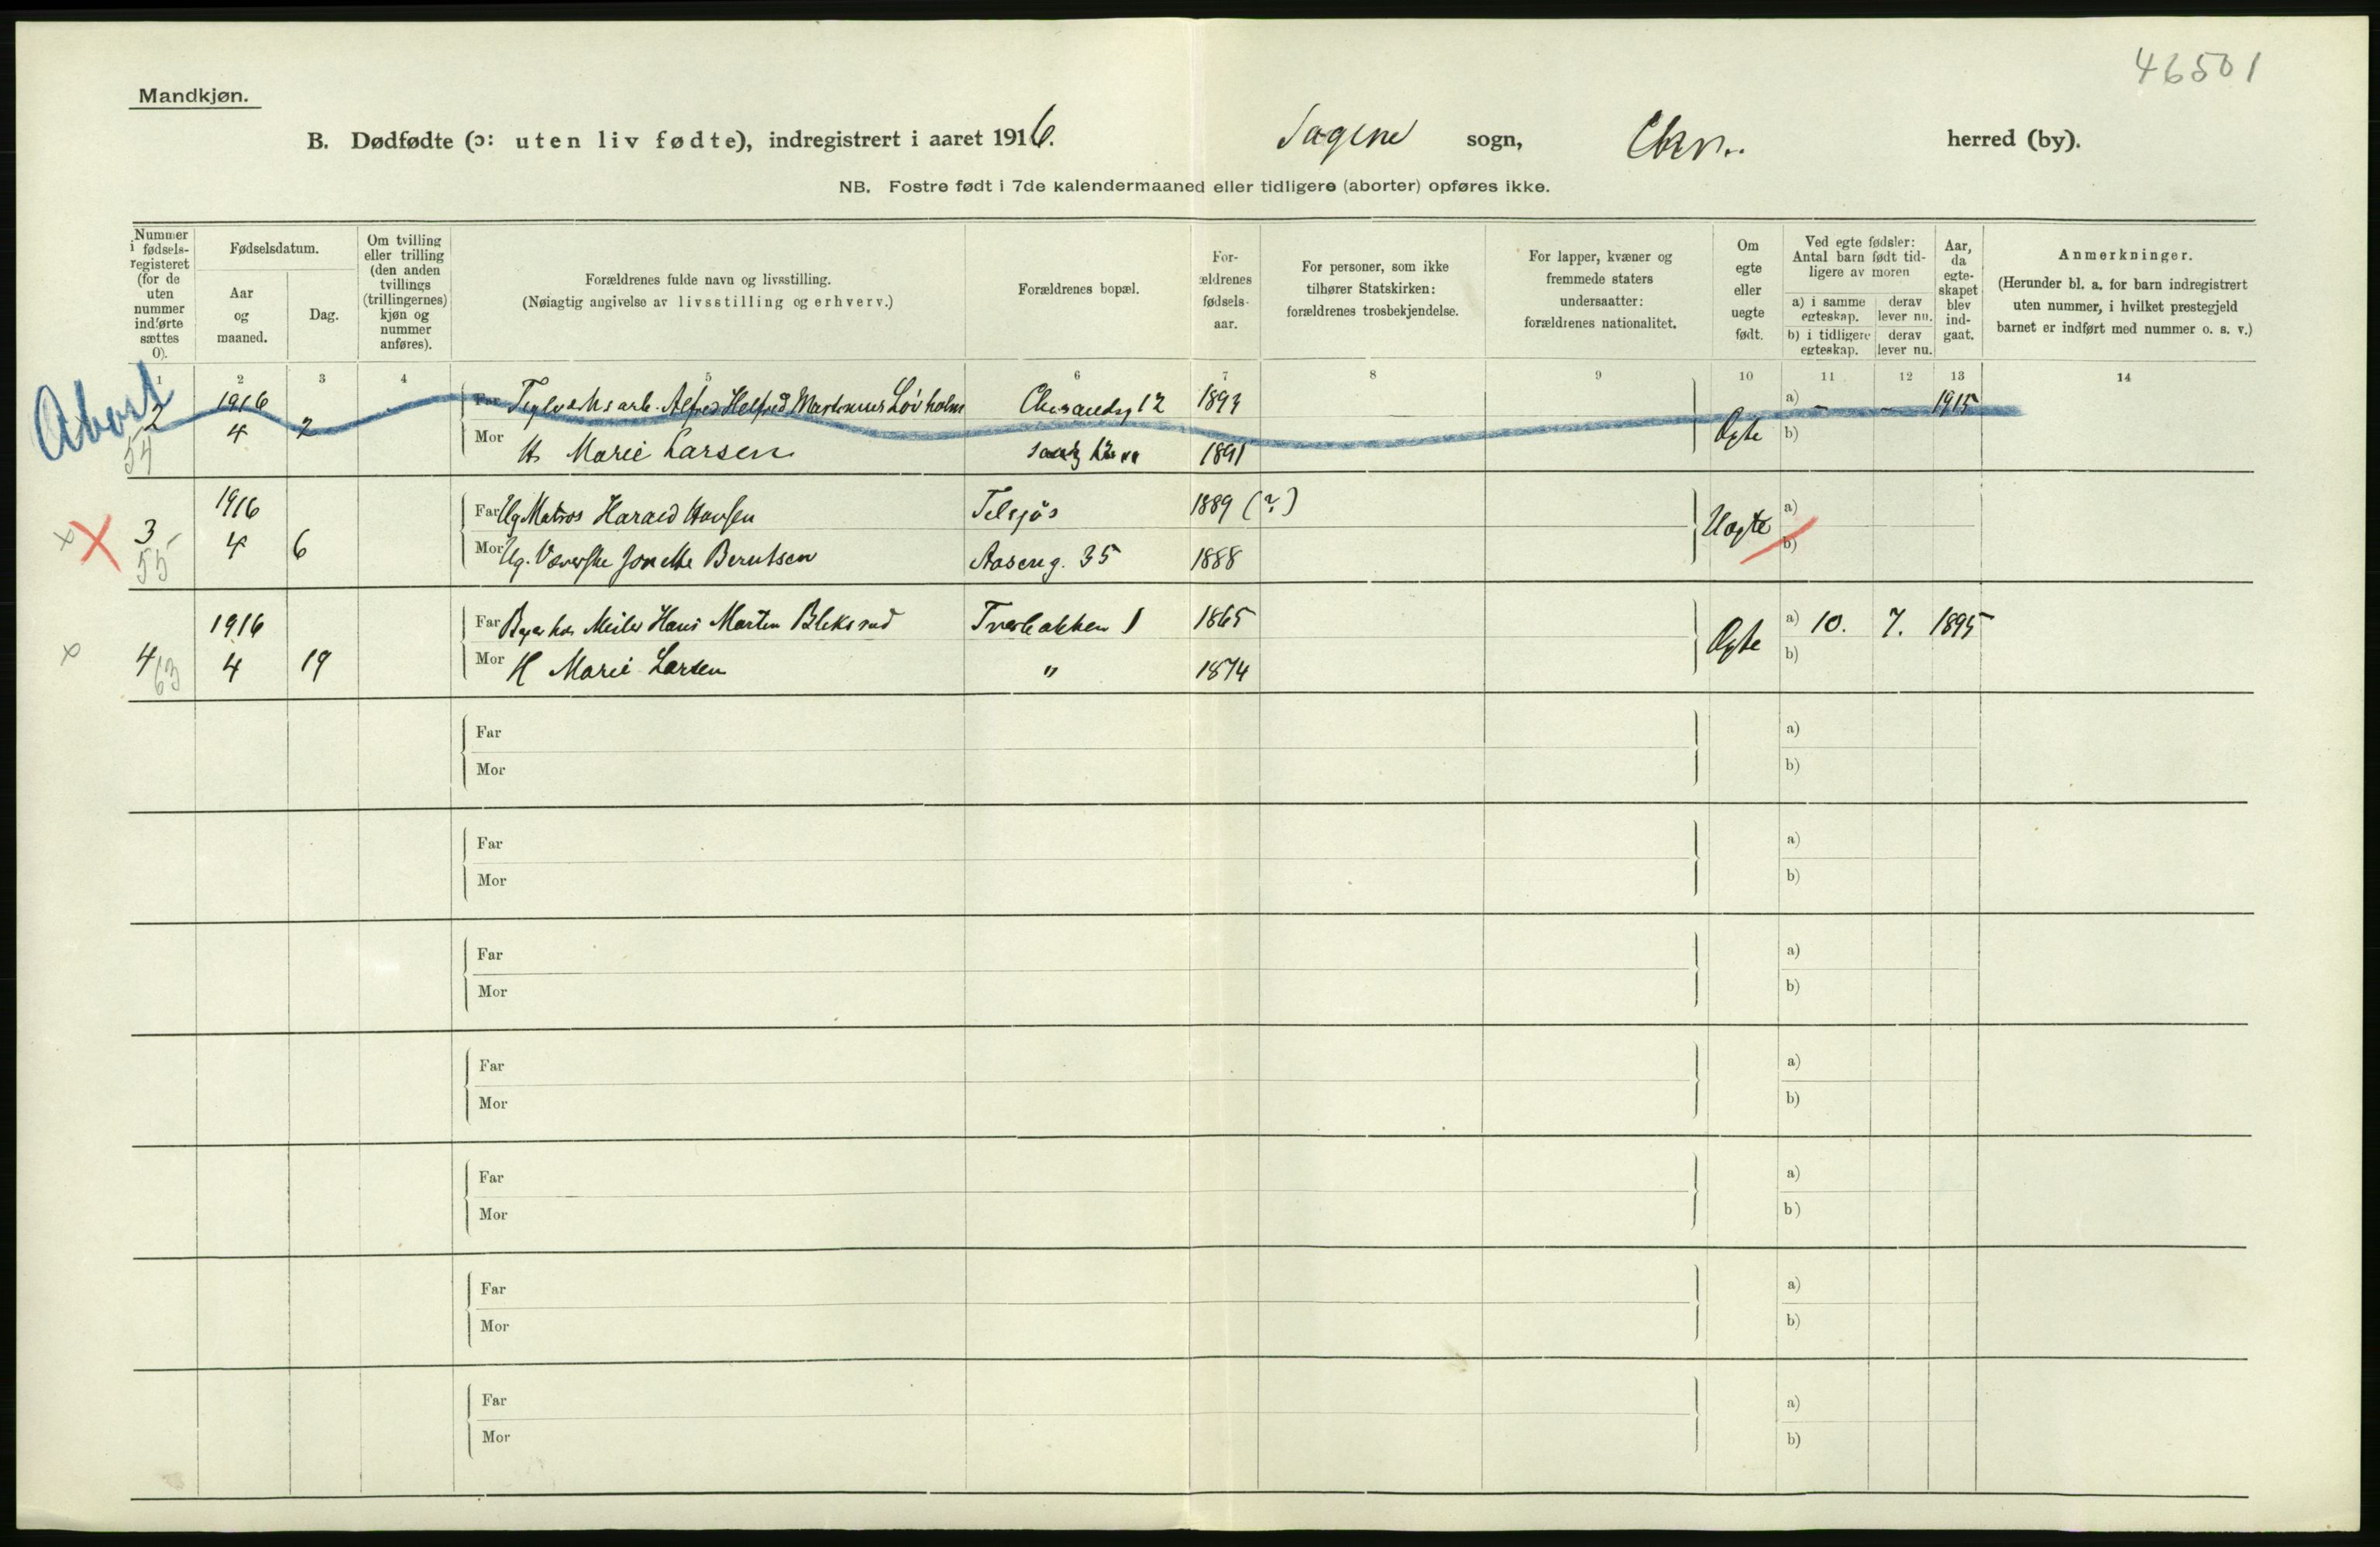 46501
Mandkjøn.
B. Dødfødte (ɔ: uten liv fødte), indregistrert i aaret 1916. Sagene sogn, Chra. herred (by).
NB. Fostre født i 7de kalendermaaned eller tidligere (aborter) opføres ikke.
Nummer i fødsels-registeret (for de uten nummer indførte sættes 0).
Fødselsdatum.
Aar og maaned.
Dag.
Om tvilling eller trilling (den anden tvillings (trillingernes) kjøn og nummer anføres).
Forældrenes fulde navn og livsstilling.
(Nøiagtig angivelse av livsstilling og erhverv.)
Forældrenes bopæl.
For-ældrenes fødsels-aar.
For personer, som ikke tilhører Statskirken: forældrenes trosbekjendelse.
For lapper, kvæner og fremmede staters undersaatter: forældrenes nationalitet.
Om egte eller uegte født.
Ved egte fødsler: Antal barn født tid-ligere av moren
a) i samme egteskap. derav lever nu.
b) i tidligere egteskap. derav lever nu.
Aar, da egte-skapet blev ind-gaat.
Anmerkninger.
(Herunder bl. a. for barn indregistrert uten nummer, i hvilket prestegjeld barnet er indført med nummer o. s. v.)
1 2 3 4 5 6 7 8 9 10 11 12 13 14
Abort
2 1916 Far Teglverksarb. Alfred Helfred Martinius Løvholm 12 1893 a) - - 1915
54 4 2 Mor H. Marie Larsen 1891 Egte b)
1916 Far Ug Matros Harald Hansen Tilsjøs 1889 (?) a)
x X 3 - 4 6 Uegte
55 Mor Ug. Væverske Jonette Berntsen Aaseng. 35 1888 b)
1916 Far Hans Martin Bleksrud Tverbakken 1 1865 a) 10. 7. 1895
x 4 63 4 19 Mor H Marie Larsen " 1874 Egte b)
Far a)
Mor b)
Far a)
Mor b)
Far a)
Mor b)
Far a)
Mor b)
Far a)
Mor b)
Far a)
Mor b)
Far a)
Mor b)